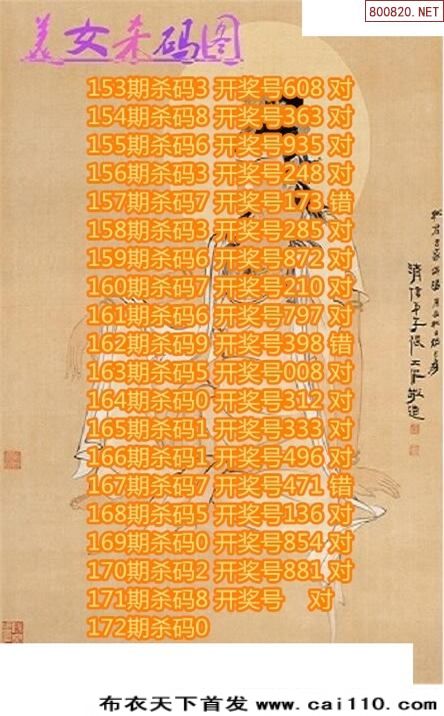 800820.NET
美女杀码图
153期杀码3 开奖号608 对
154期杀码8 开奖号363 对
155期杀码6 开奖号935 对
156期杀码3 开奖号248 对
157期杀码7 开奖号173 错
158期杀码3 开奖号285 对
159期杀码6 开奖号872 对
160期杀码7 开奖号210 对
161期杀码6 开奖号797 对
162期杀码9 开奖号398 错
163期杀码5 开奖号008 对
164期杀码0 开奖号312 对
165期杀码1 开奖号333 对
166期杀码1 开奖号496 对
167期杀码7 开奖号471 错
168期杀码5 开奖号136 对
169期杀码0 开奖号854 对
170期杀码2 开奖号881 对
171期杀码8 开奖号 对
172期杀码0
布衣天下首发 www.cai110.com